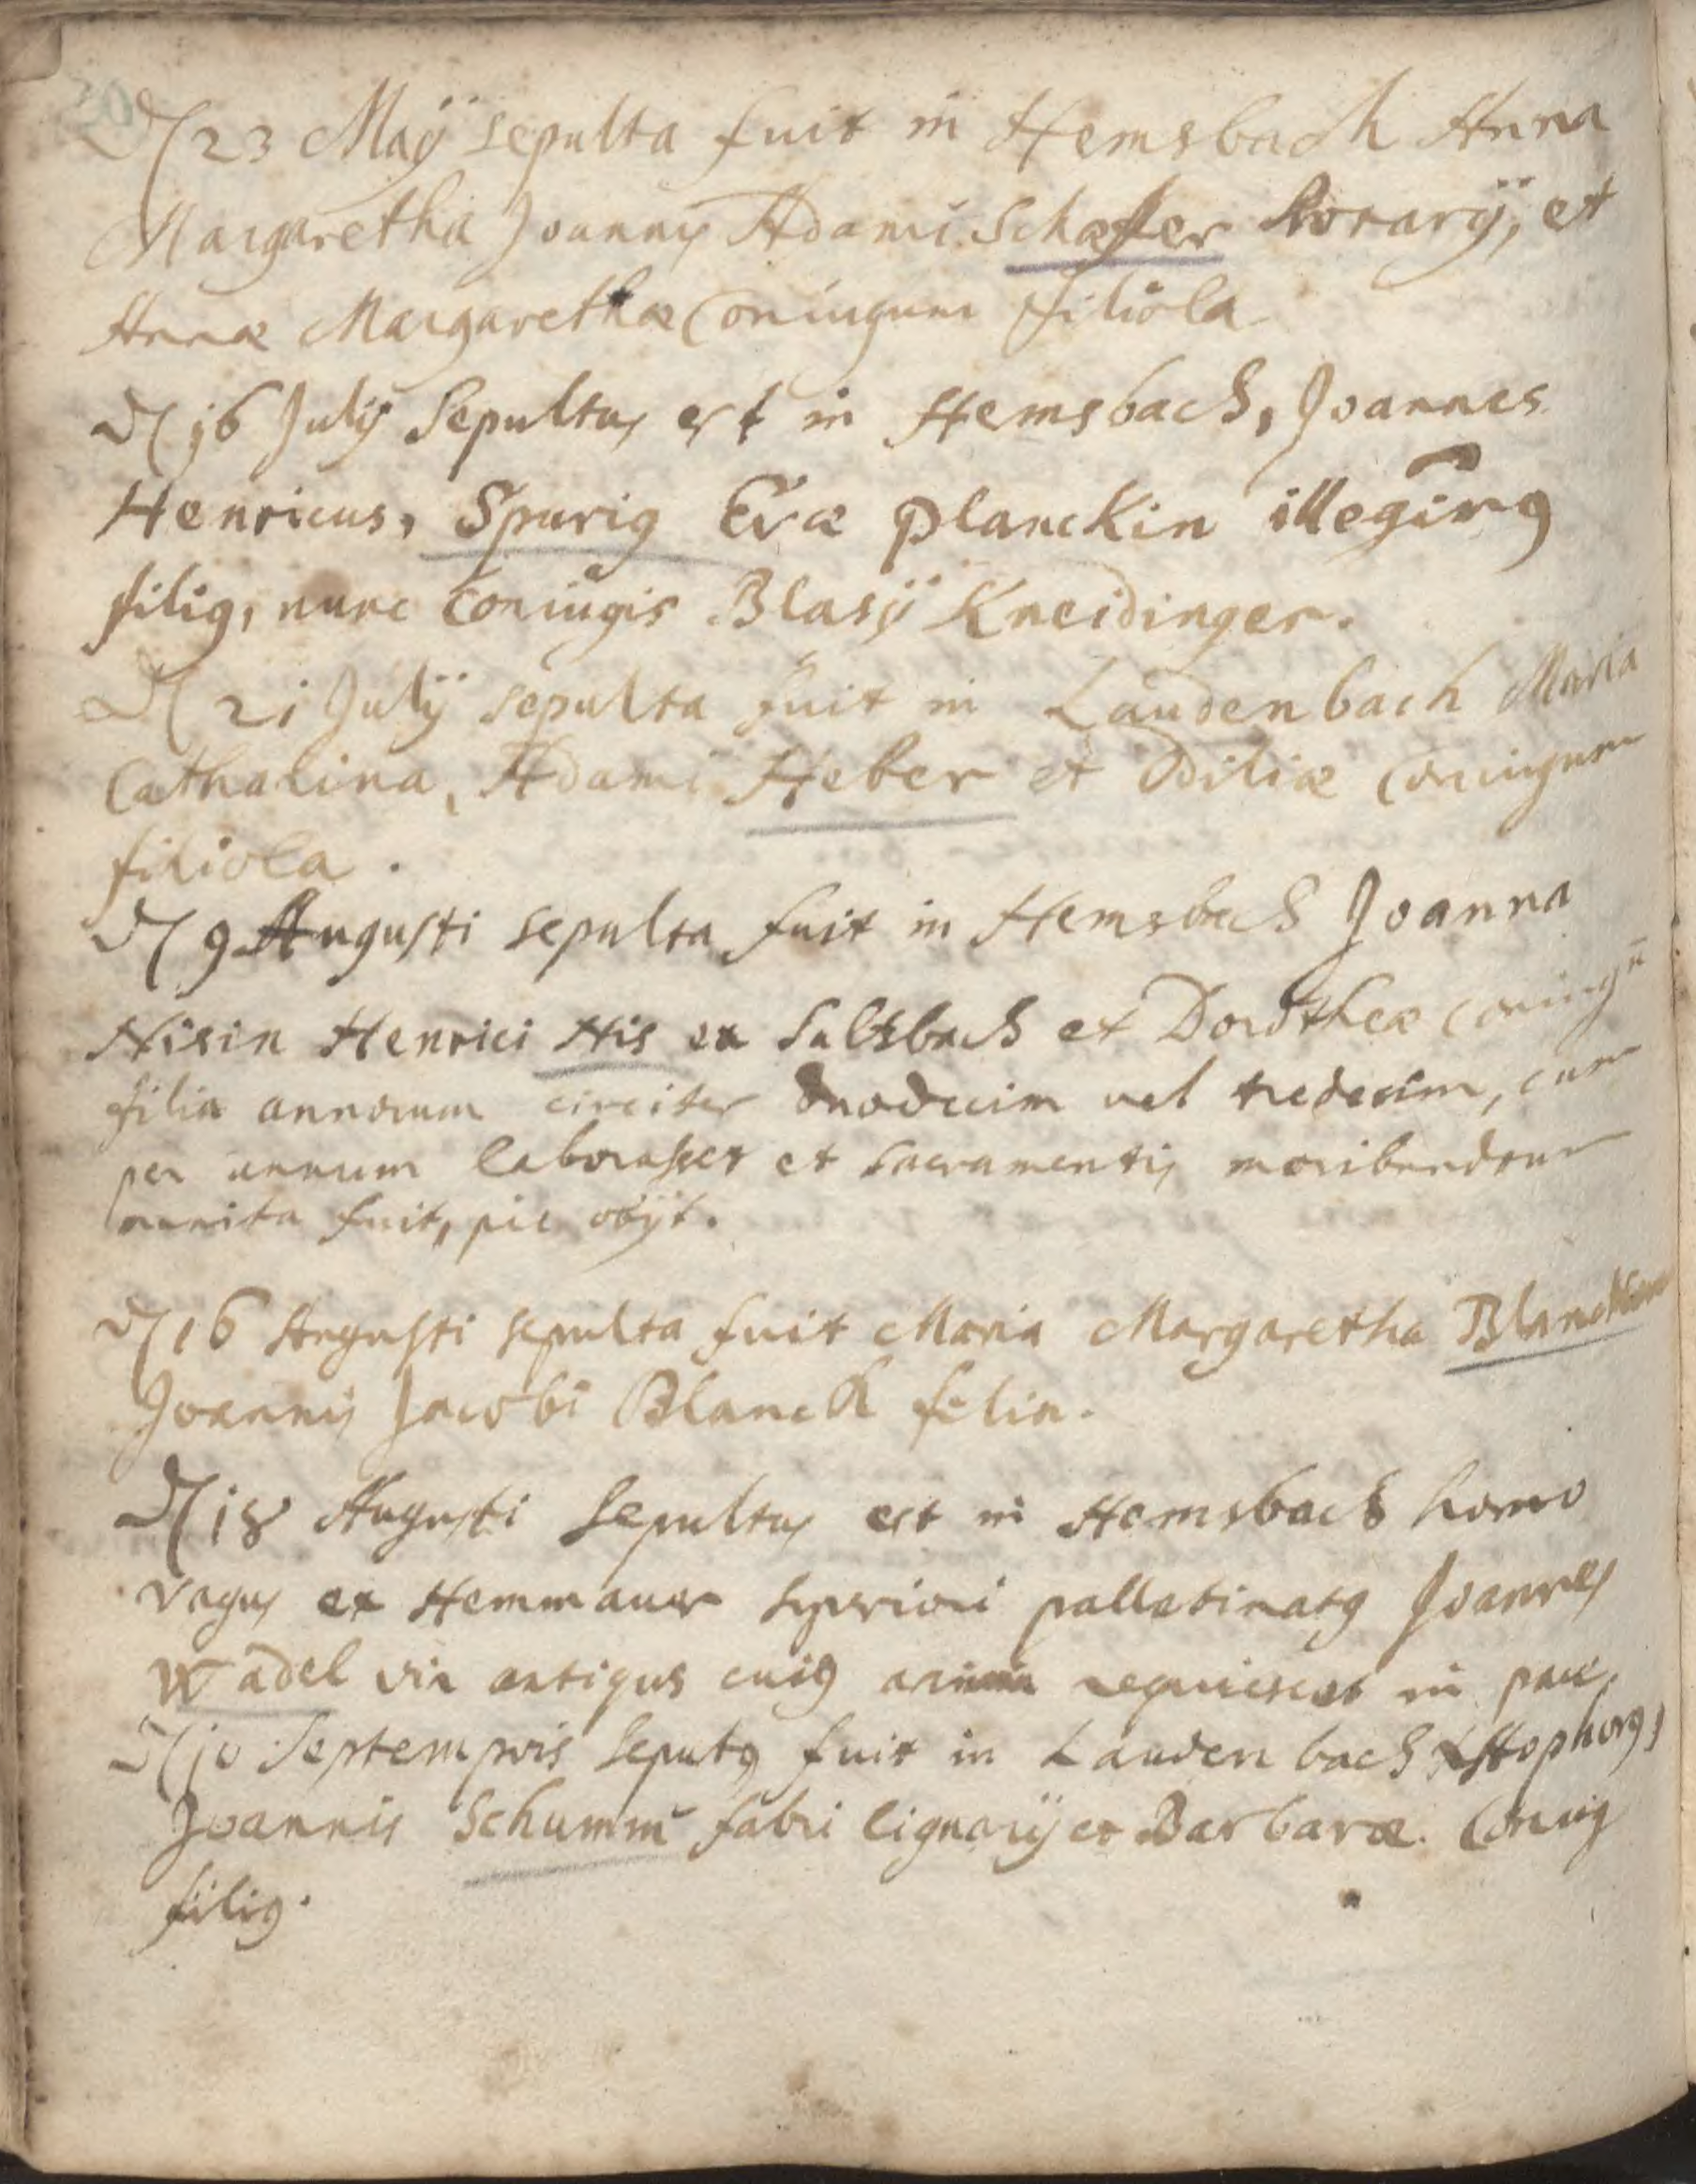 D 23 Maÿ sepulta fuit in Hemsbach Anna
Margaretha Joannis Adami Schaffer et
Annæ Margarethæ Coniugum filiola
D 16 Julÿ Sepultus est in Hemsbach, Joannes
Henricus, Spurig Evæ planckin
filig, nunc Coniugis Blasÿ Kneidinger.
D 21 Julÿ sepulta fuit in Laudenbach Maria
Catharina, Adami Heber et Odiliæ coniugum
filiola.
D 9 Augusti sepulta fuit in Hemsbach Joanna
Nisin Henrici Nis ex Sultzbach et Dorotheæ coniugū
filia annorum circiter duodecim vel tredecim, cum
per annum laborasset et sacramentis moribundoum
munita fuit, pie obÿt.
D 16 Augusti sepulta fuit Maria Margaretha
Joannis Jacobi Blanck felia.
D 18 Augusti Sepultus est in Hemsbach homo
vagus ex Hemmauer superiori pallatinatg Joannes
Wadel vir antiqus cuig anima requiescat in pace
D 10 Septempris seputg fuit in Laudenbach
Joannis Schumm fabri lignarÿ et Barbaræ Coniug
filig.